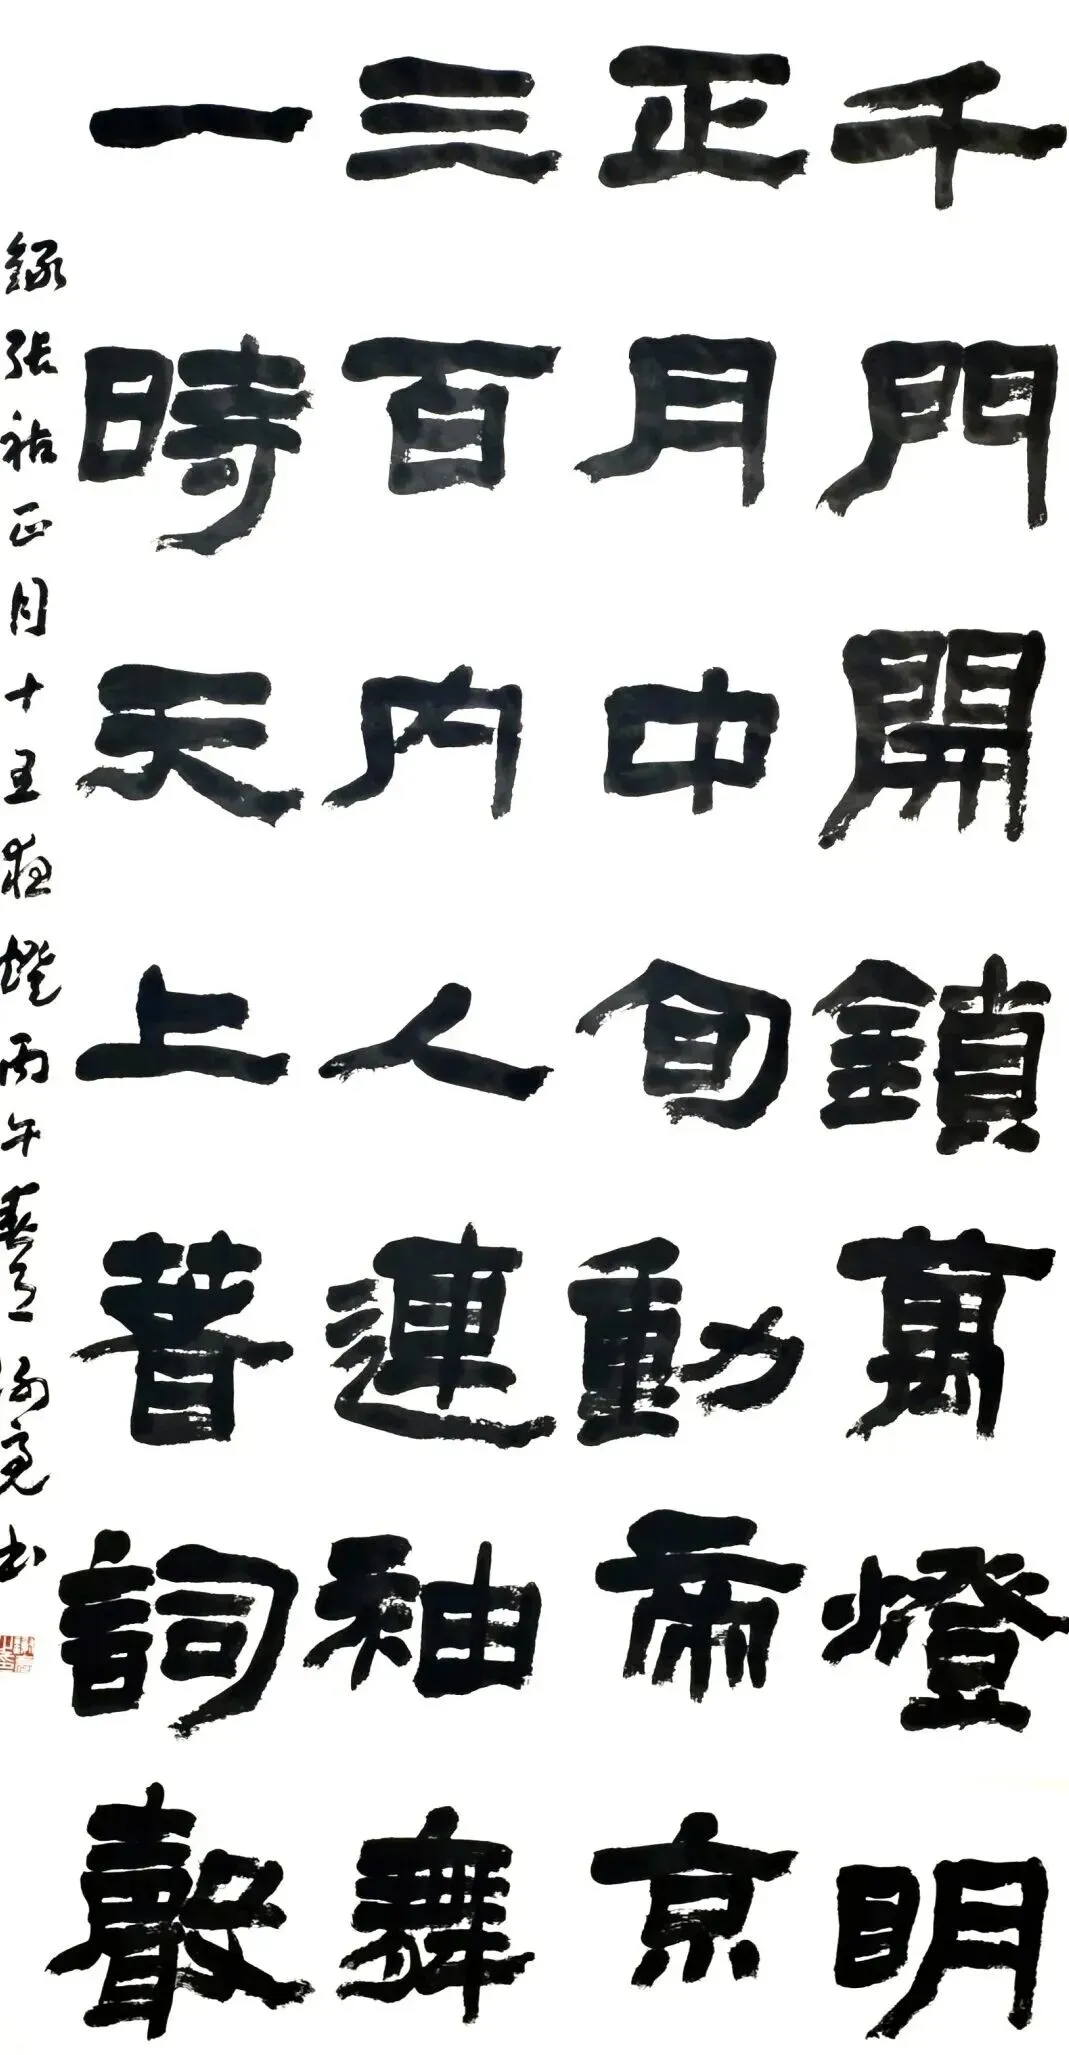 千門開鎖萬燈明
正月中旬動帝京
三百内人連袖舞
一時天上著詞聲
録張祜正月十五夜燈丙午春亮书